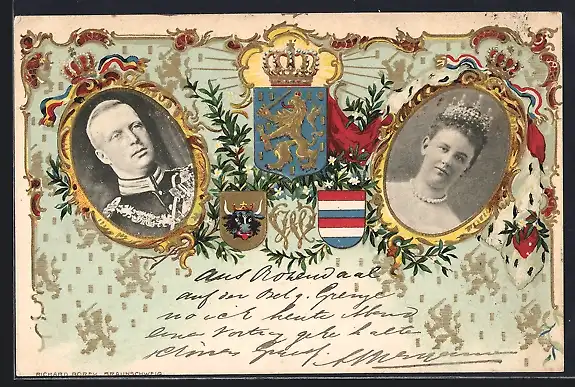 Aus Rosendaal
auf der Belg. Grenze
wo ich heute Abend
einen Vortrag gehalten
schönen Gruß!
RICHARD BOREK, BRAUNSCHWEIG